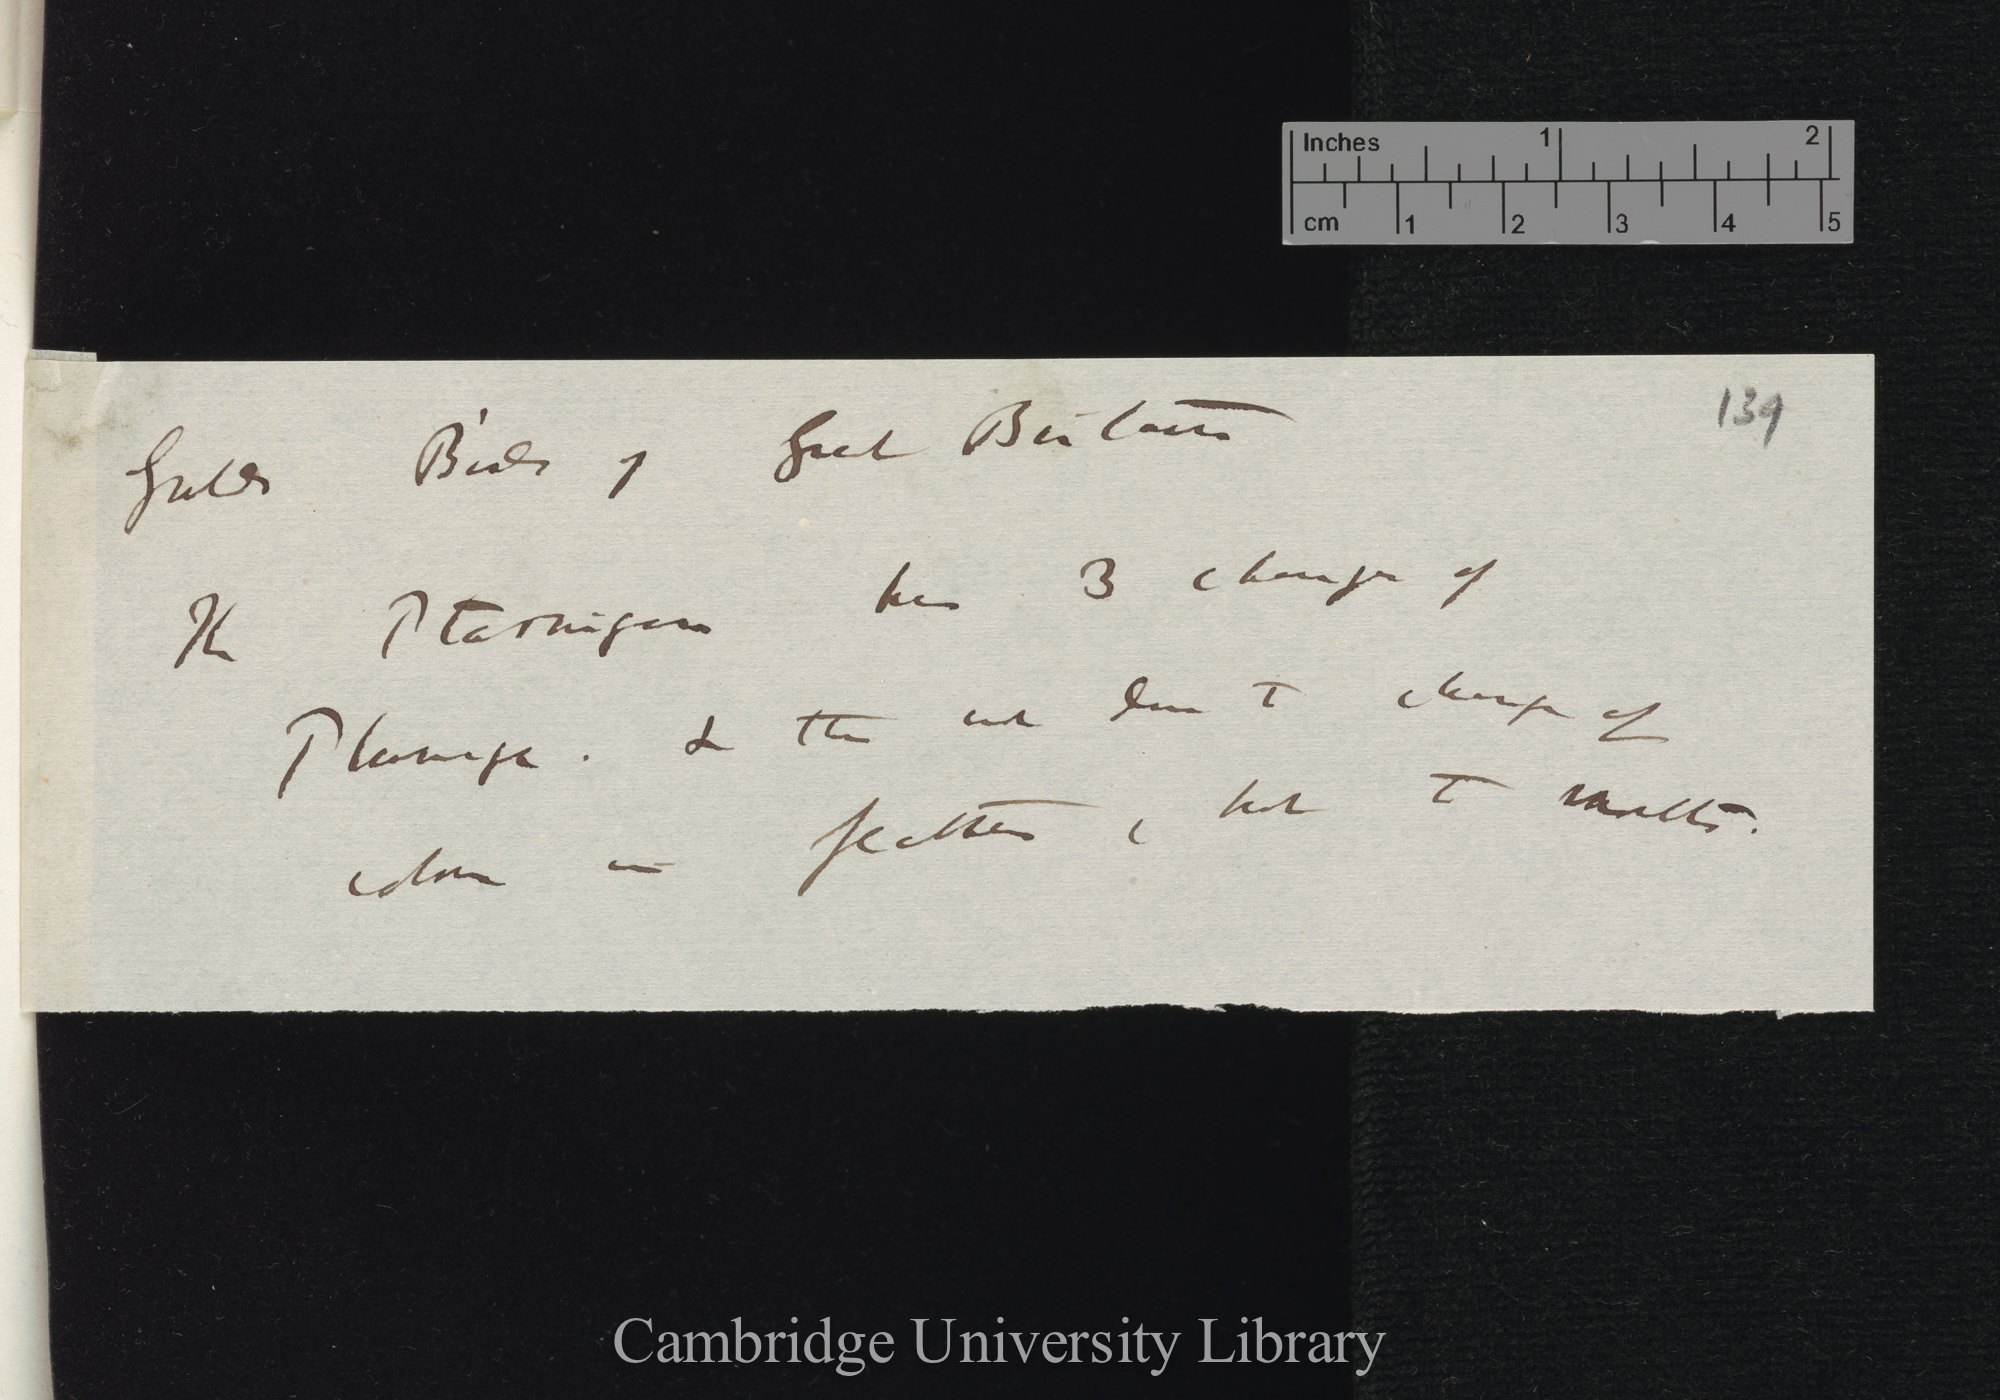 Inches 1 2
cm 1 2 3 4 5
139
Goulds Birds of Great Britain
The Ptarmigan has 3 change of
Plumage. & this not due to change of
colour in feathers, but to moults.
Cambridge University Library